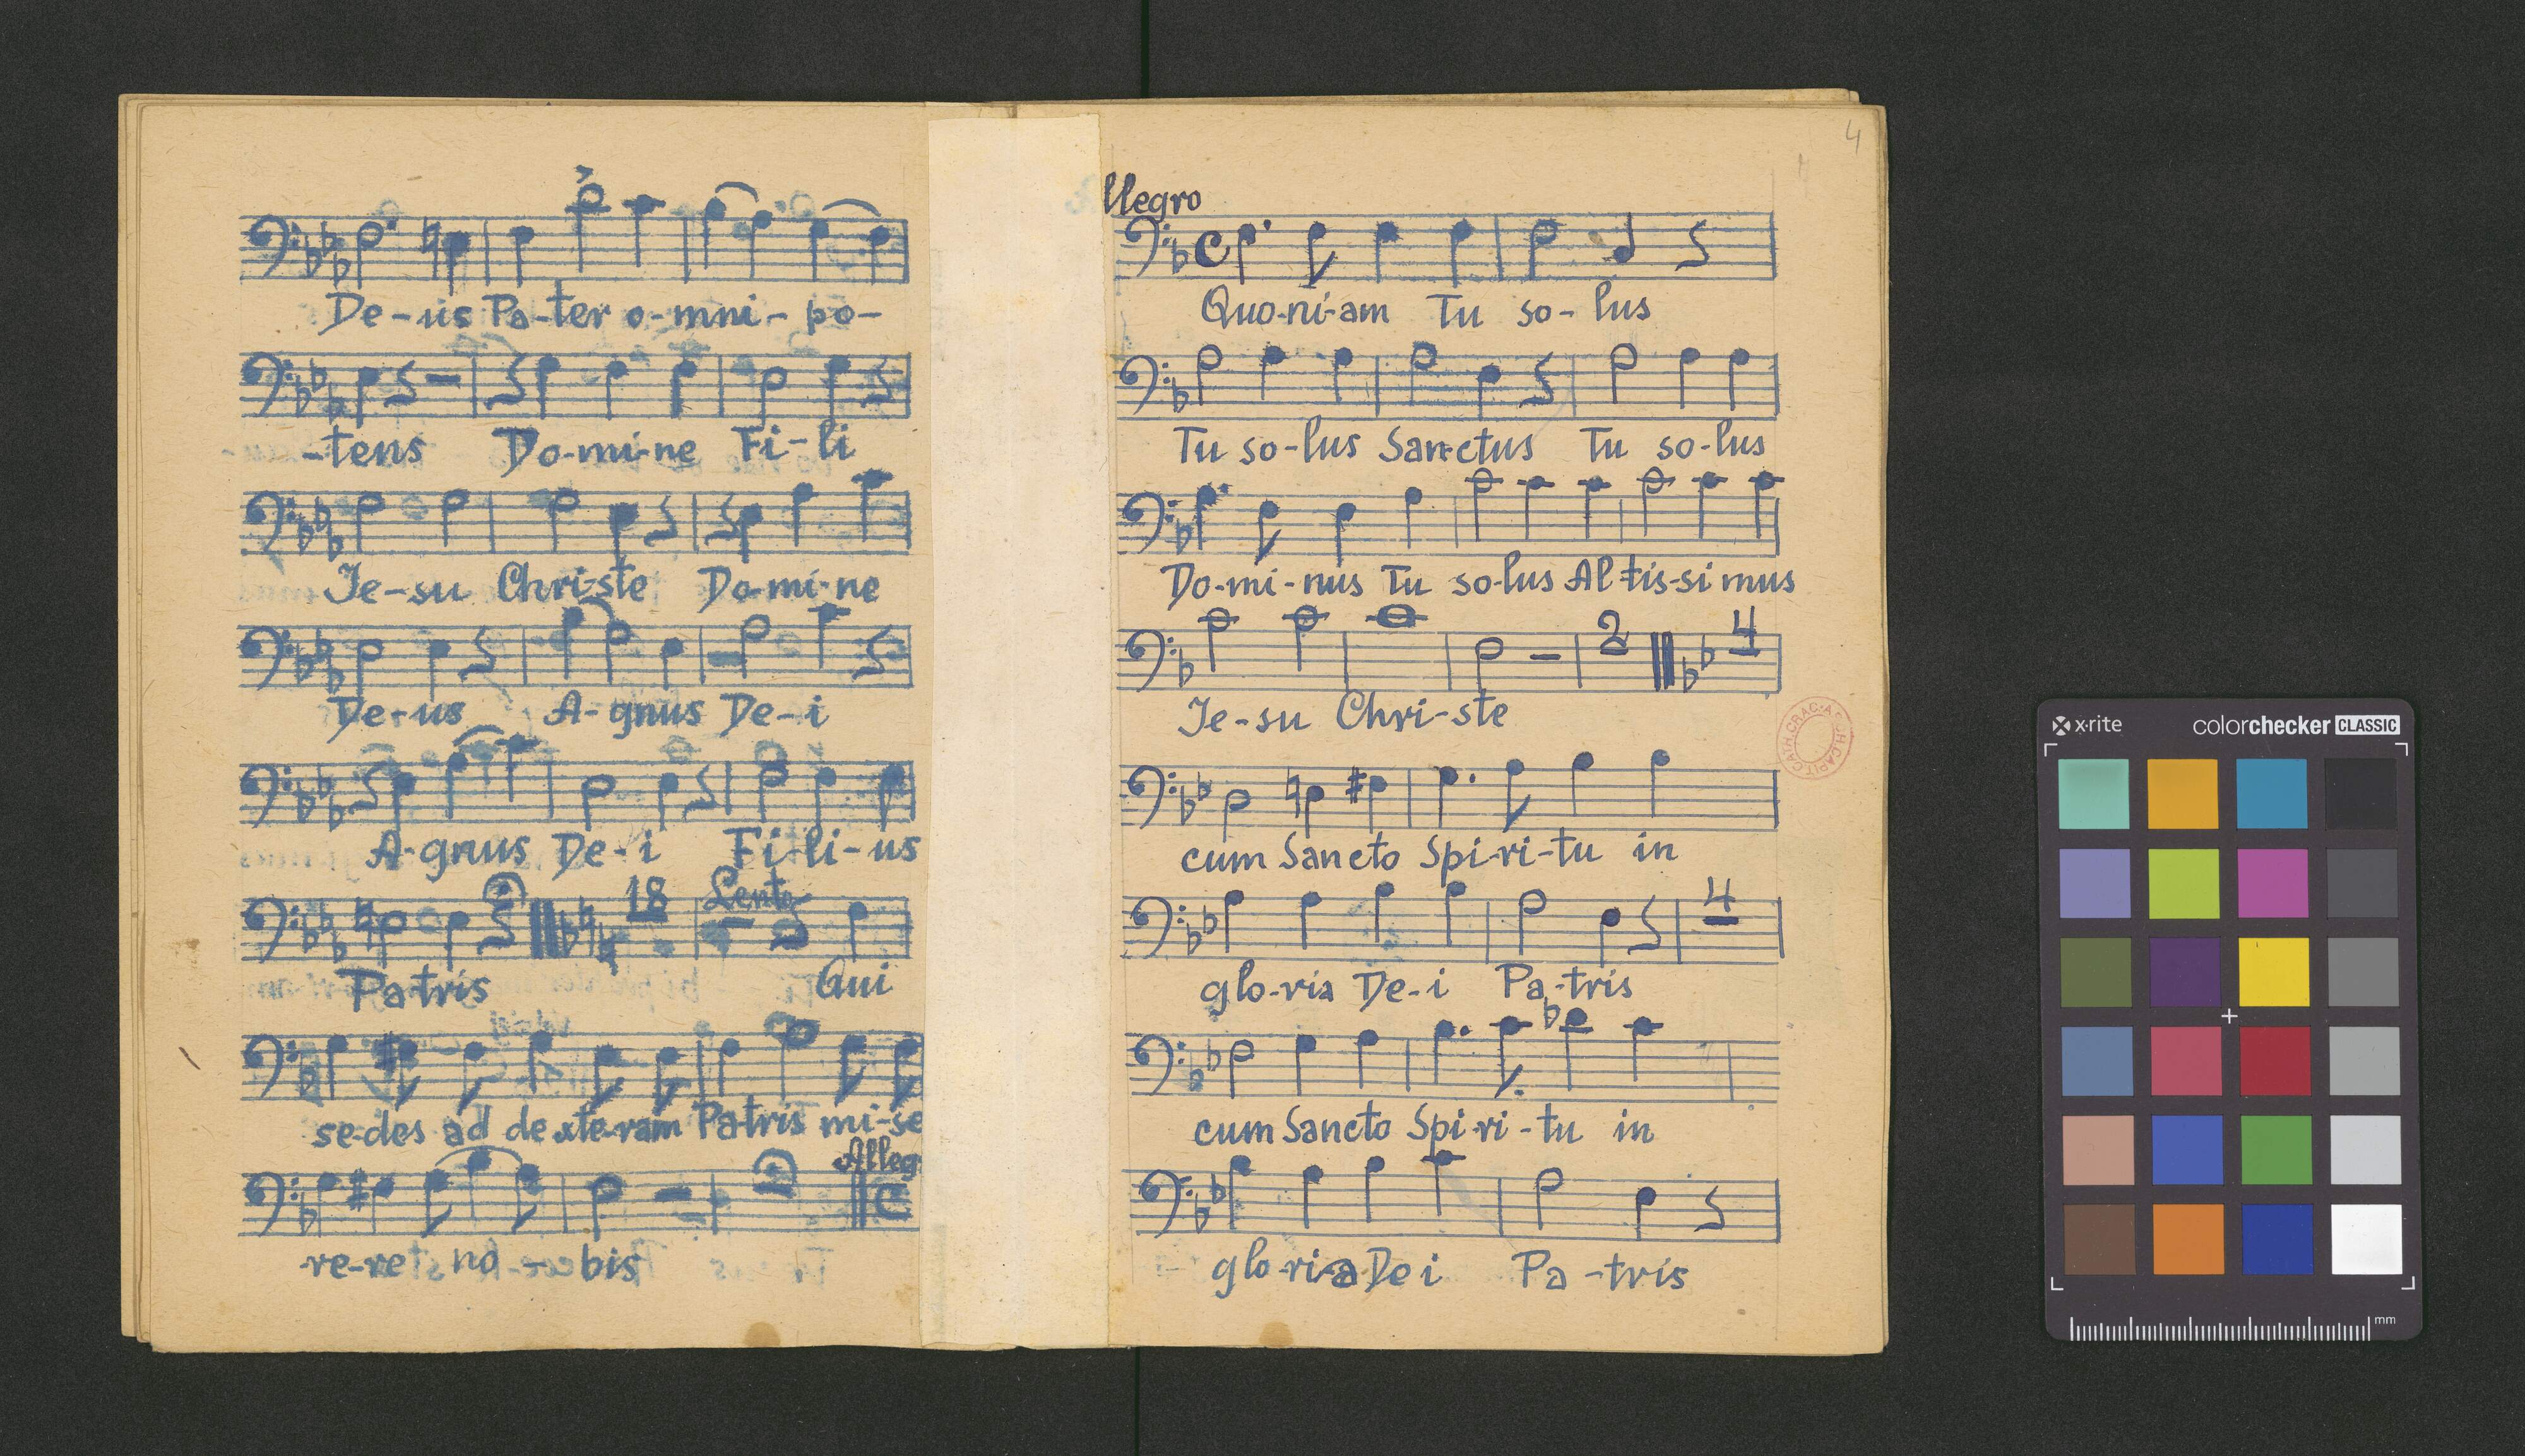 De-us Pa-ter o-mni-po-
-tens Do-mi-ne Fi-li
Je-su Chri-ste Do-mi-ne
De-us A-gnus De-i
A-gnus De-i Fi-li-us
18 Lento
Pa-tris Qui
se-des ad dexte-ram Pa-tris mi-se
Alleg
re-re no-bis
4
llegro
C
Quo-ni-am Tu so-lus
Tu so-lus San-ctus Tu so-lus
Do-mi-nus Tu so-lus Al-tis-si mus
2 4
Je-su Chri-ste
cum Sancto Spi-ri-tu in
4
glo-ria De-i Pa-tris
cum Sancto Spi-ri-tu in
glo-ri-a De i Pa-tris
x-rite colorchecker CLASSIC
mm